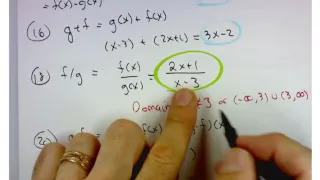 = f(x)-g(x)
(16) g+f = g(x) + f(x)
(x-3) + (2x+1) = 3x-2
(18) f/g = f(x)/g(x) = 2x+1/x-3
Domain ≠3 or (-∞,3) ∪ (3,∞)